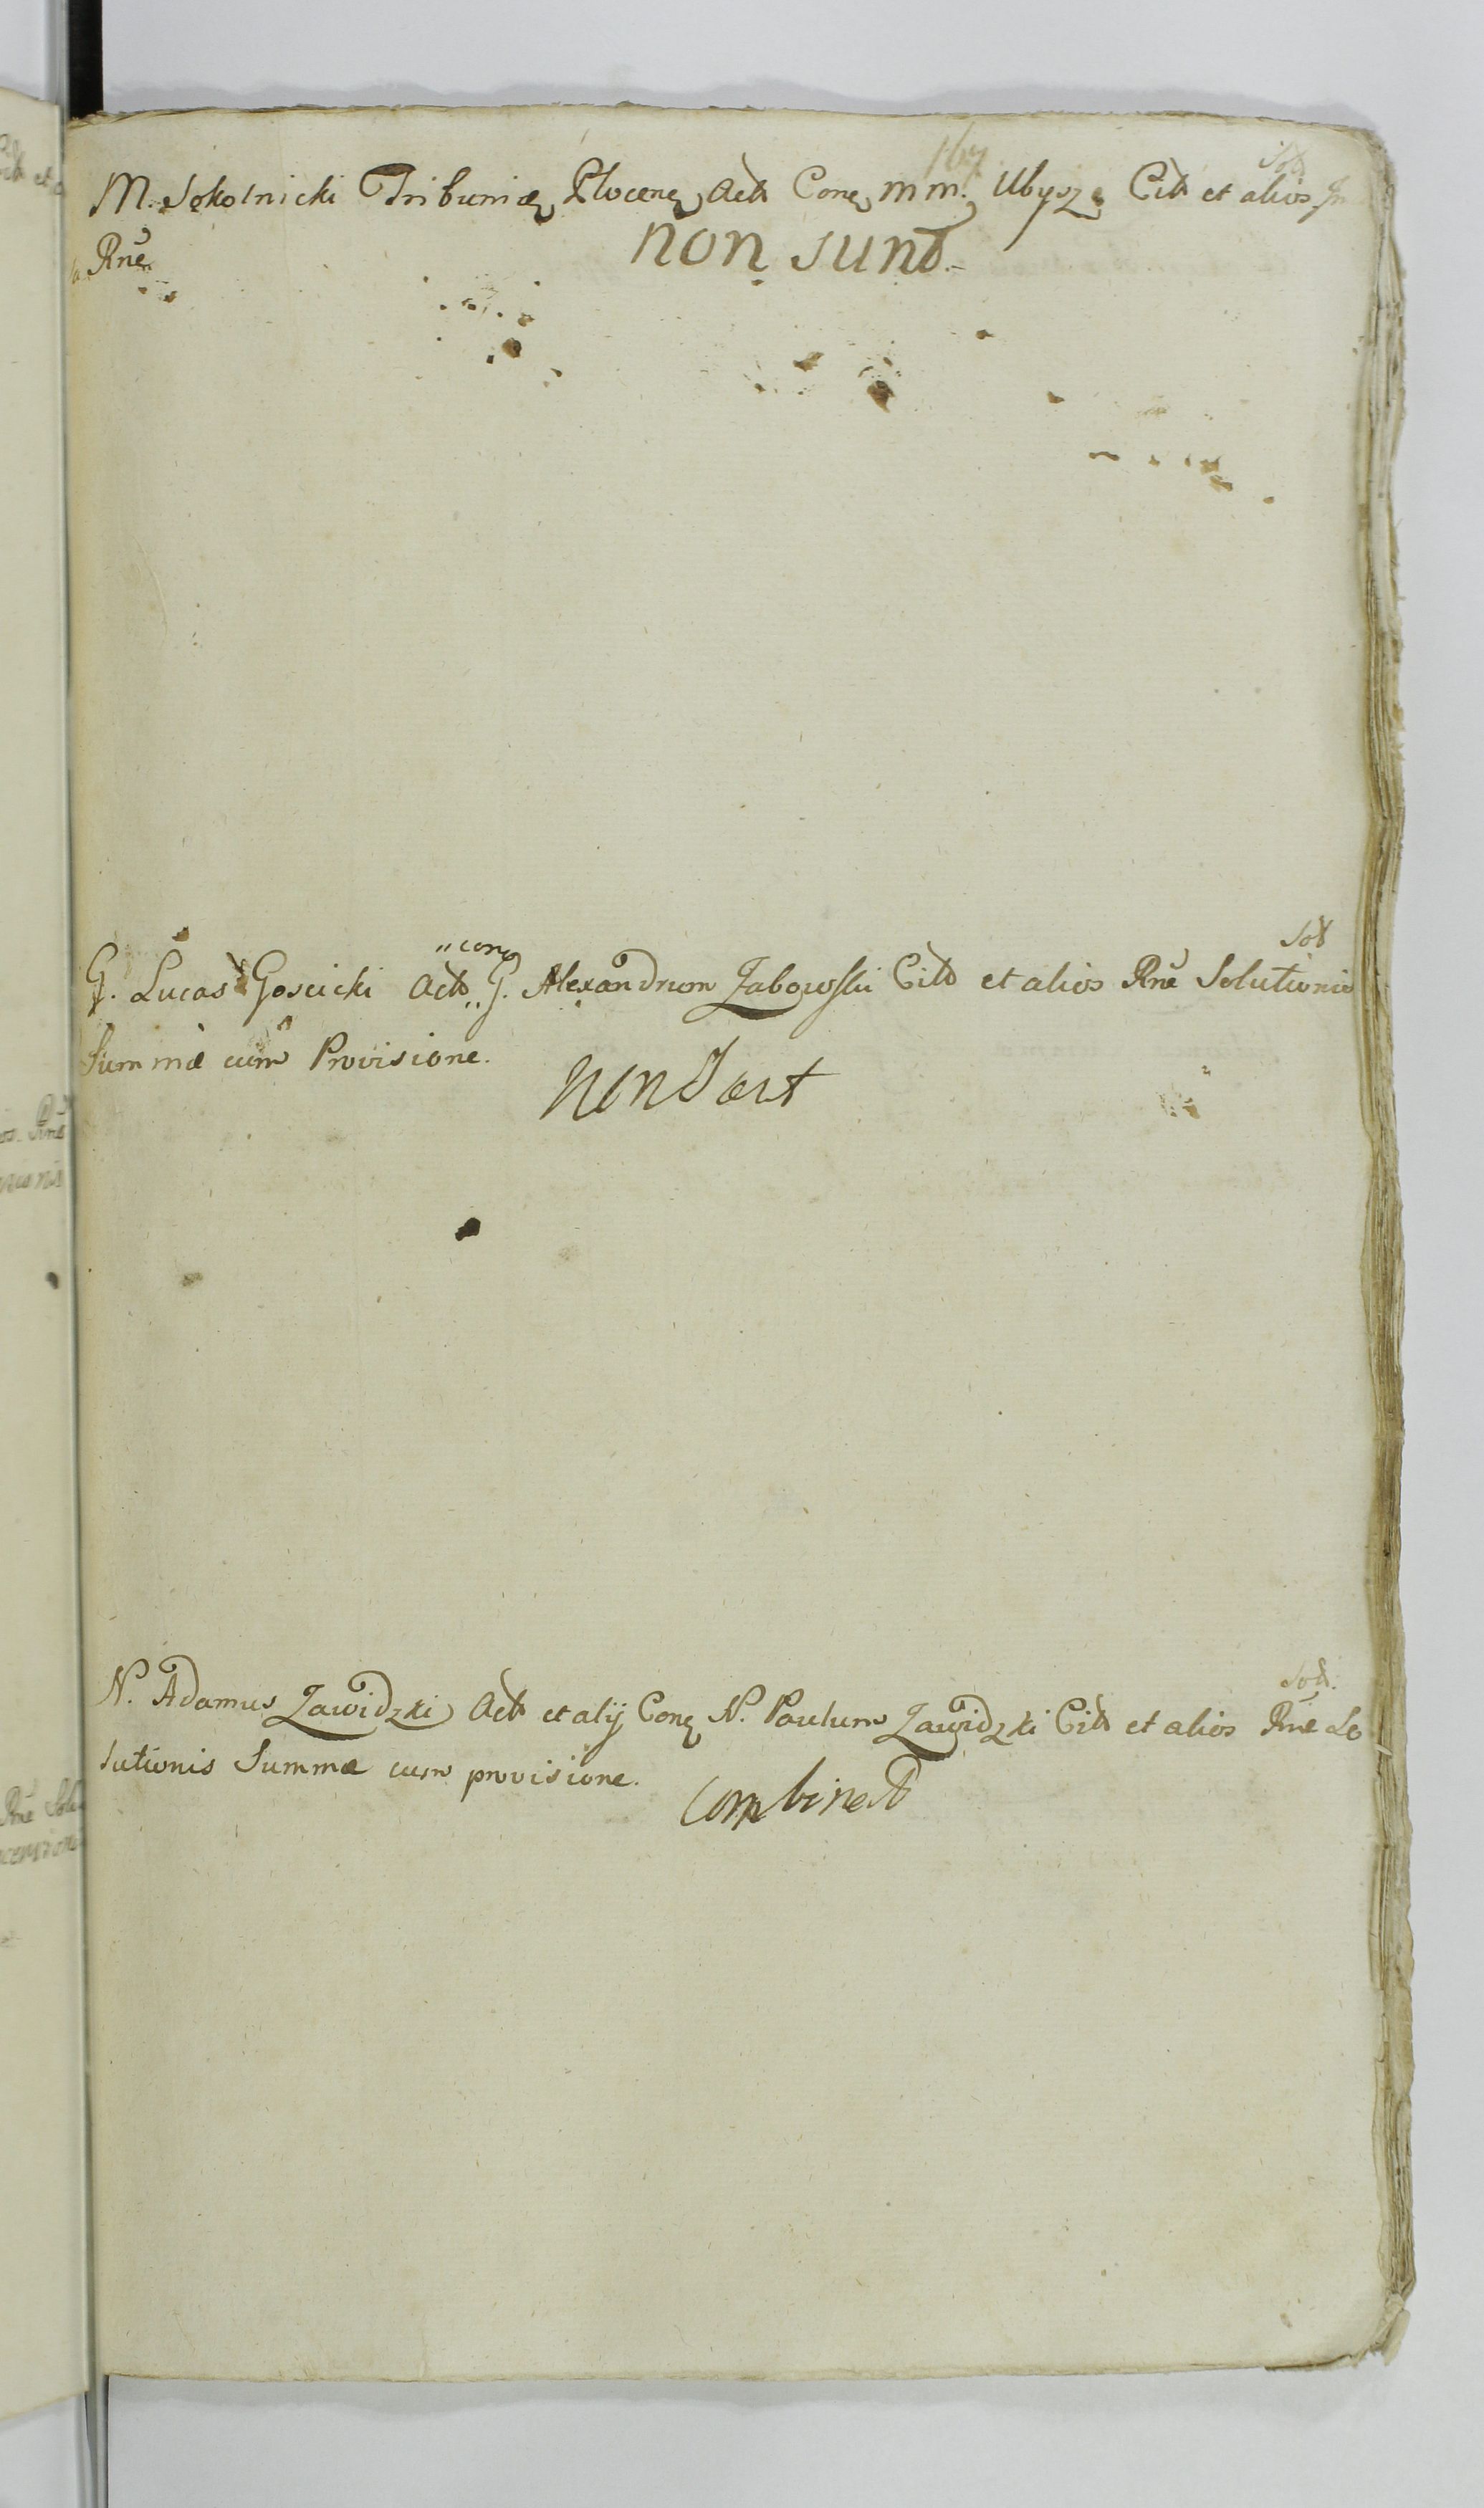 167
Sot
M. Sokolnicki Tribunid Plocens Act Cone M M. Ubysz Citt et alios In
Rne
non sunt.
cone
Sot
G. Lucas Goscicki Act G. Alexandrum Zabowski Citt et alios Rne Solutionis
Summæ cum Provisione.
Non sunt
Sott.
N. Adamus Zawidzki Act et alij Cone N. Paulum Zawidzki Citt et alios Rne So
lutionis Summæ cum provisione.
Combinet